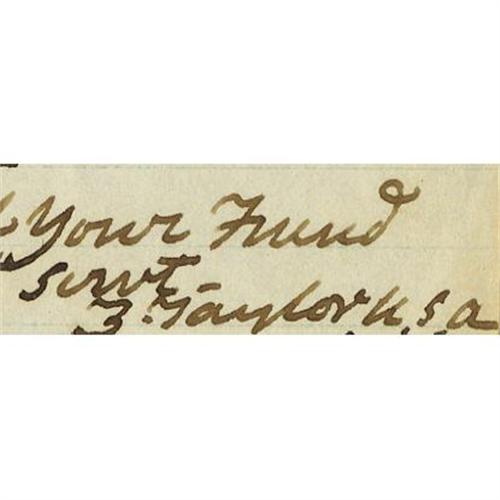 & Your Friend
servt
Z. Taylor U. S. A